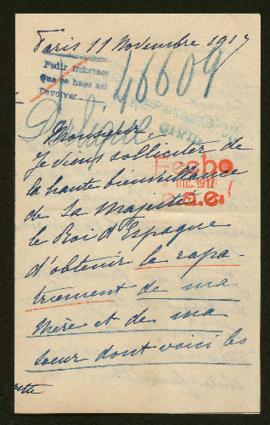 Paris 11 Novembre 1917
Pedir informes
Que se haga así
Devolver
46609
Monsieur,
Je viens solliciter de
la haute bienveillance
Fecho
DIC. 1917
de Sa Majesté
le Roi d'Espagne
d'obtenir le rapa-
triement de ma
mère et de ma
soeur dont voici les